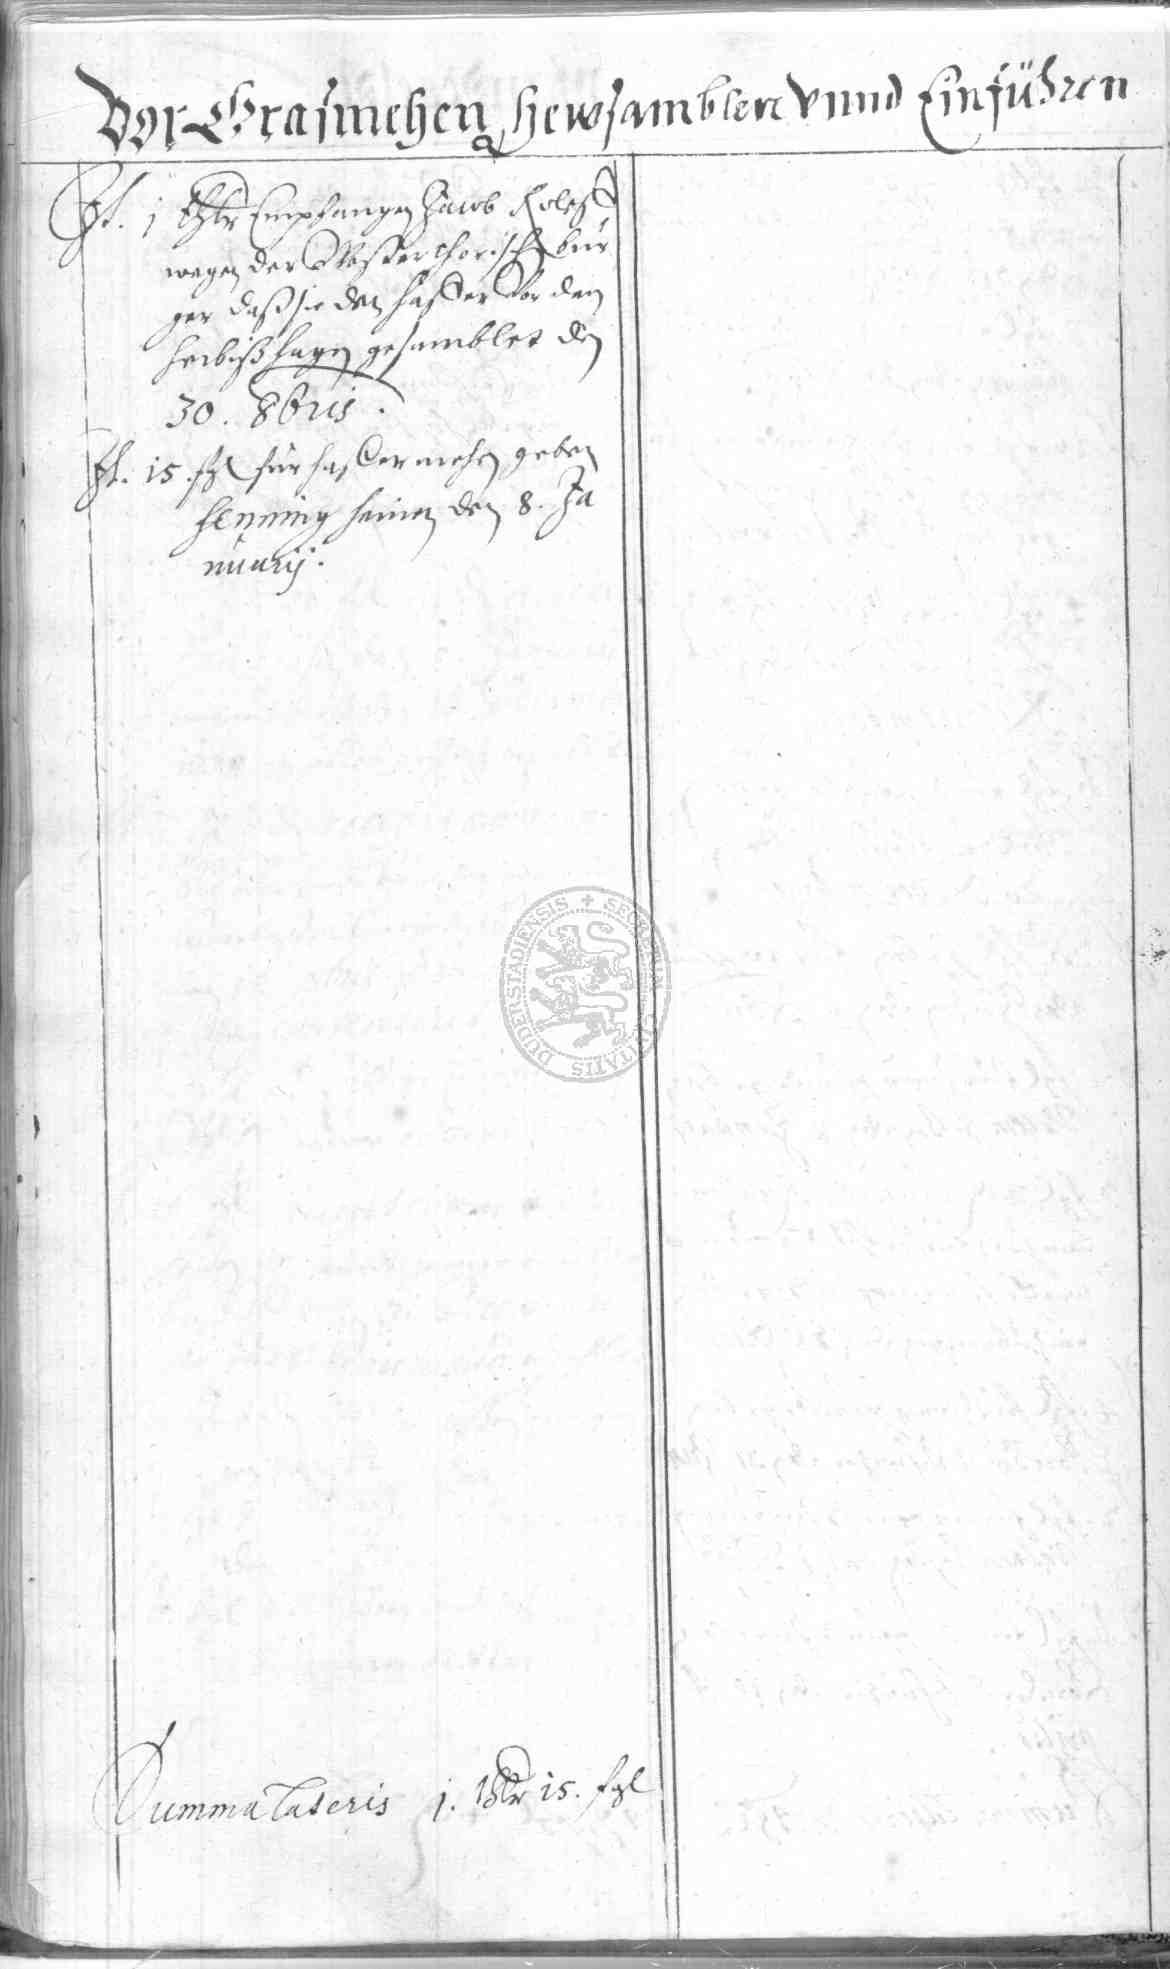 Vor Grasmehen hewsamblen vnnd Einführen
It. 1 thlr Empfangen Jacob
wegen der Westerthorischen bür
ger daß sie den haffer vor dem
gesamblet den
30. 8bris.
It. 15 fgl für haffer mehen geben
Henning heinen den 8. Ja
nuarij.
Summa Lateris 1. thlr 15. fgl
DUDERSTADIENSIS + SECRETUM CIVITATIS